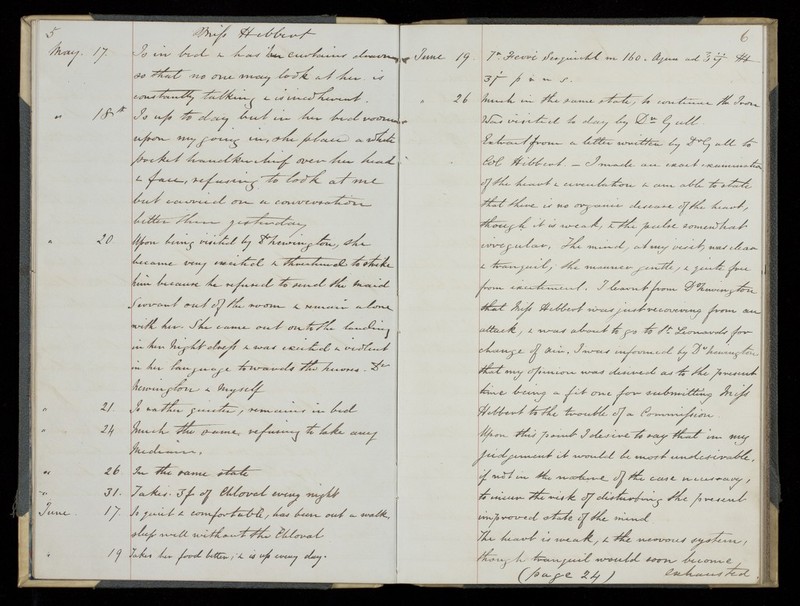 5
Miss Hibbert
May. 17. Is in bed & has her curtains drawn
so that no one may look at her is
constantly talking & is incoherent.
" 18th Is up to day but in her bed room
upon my going in, she places a white
pocket handkerchief over her head
& face, refusing to look at me
but carried on a conversation
better than yesterday.
" 20. Upon being visited by Dr Newington, she
became very excited & threatened to strike
him because he refused to send the maid
Servant out of the room & remain alone
with her. She came out on to the landing
in her Night dress & was excited & violent
in her language towards the nurses. Dr
Newington & Myself
" 21 Is rather quieter, remains in bed
" 24 Much the same, refusing to take any
Medicine.
" 26. In the same state
" 31. Takes ʒf of Chloral every night
June 17. Is quiet & comfortable, has been out a walk,
sleeps well without the Chloral
" 19 Takes her food better, & is up every day.
6
June 19. Tr Ferri
" 26 Much in the same state, to continue the Iron
Was visited to day by Dr Gull
Extract from a letter written by Dr Gull to
Col Hibbert. — I made an exact examination
of the heart & circulation & am able to state
that there is no organic disease of the heart,
though it is weak, & the pulse somewhat
irregular, The mind, at my visit, was clear
& tranquil; the manner gentle, & quite free
from excitement. I learnt from Dr Newington
that Miss Hibbert was just recovering from an
attack, & was about to go to St. Leonards for
change of air. I was informed by Dr Newington
that my opinion was desired as to the present
time being a fit one for submitting Miss
Hibbert to the trouble of a Commission.
Upon this point I desire to say that in my
judgement it would be most undesirable,
if not in the nature of the case necessary,
to incur the risk of disturbing the present
improved state of the mind
The heart is weak, & the nervous system,
though tranquil would soon become
(page 24) exhausted